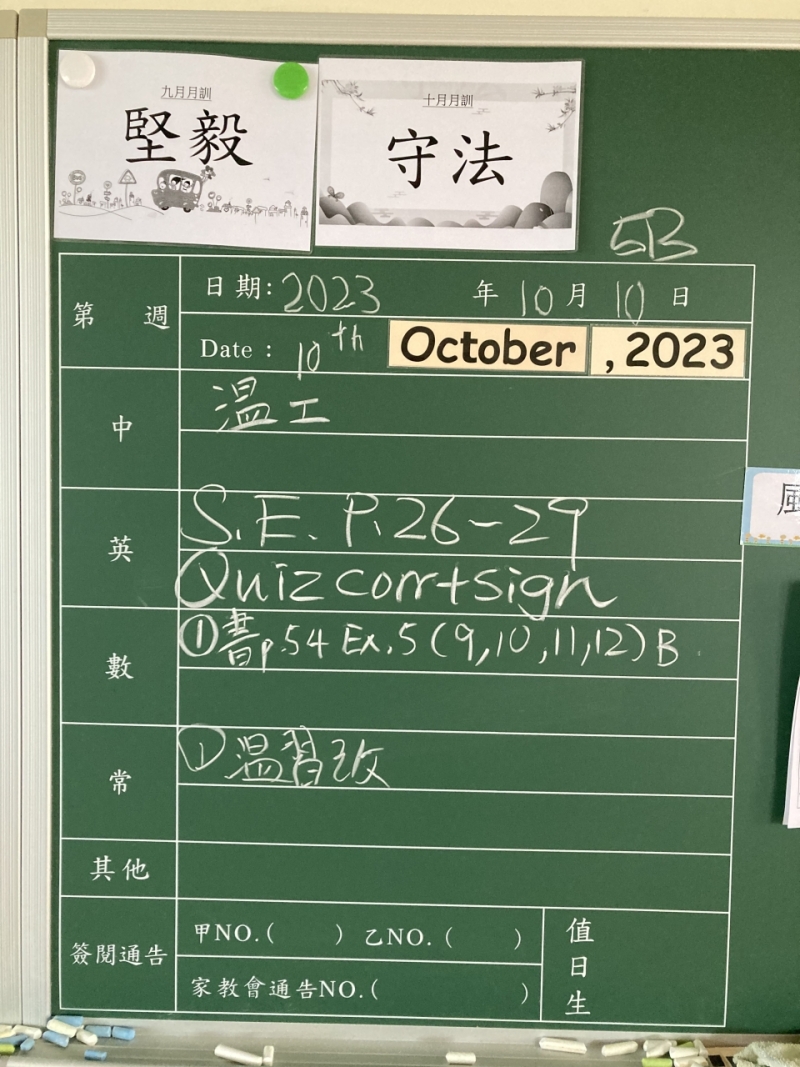 九月月訓
堅毅
十月月訓
守法
5B
第 週
日期: 2023 年 10 月 10 日
Date : 10th October , 2023
中
温工
英
S.E. P.26-29
Quiz corr+sign
數
①書p.54 Ex.5 (9,10,11,12) B
常
①温習改
其他
簽閱通告
甲NO.( ) 乙NO.( )
家教會通告NO.( )
值日生
風